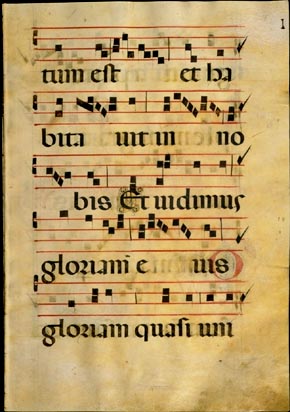 1
tum est et ha
bita uit in no
bis Et uidimus
gloriam e ius
gloriam quasi uni